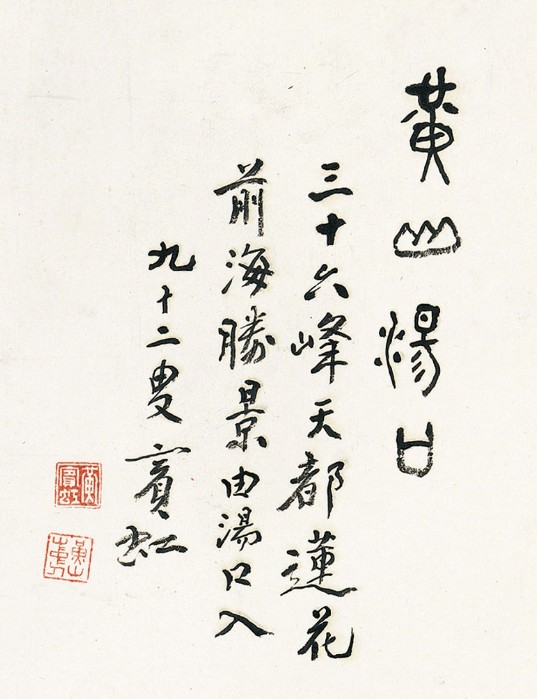 黃山湯口
三十六峰天都蓮花
前海勝景由湯口入
九十二叟賓虹
黃賓虹
黃山山中人